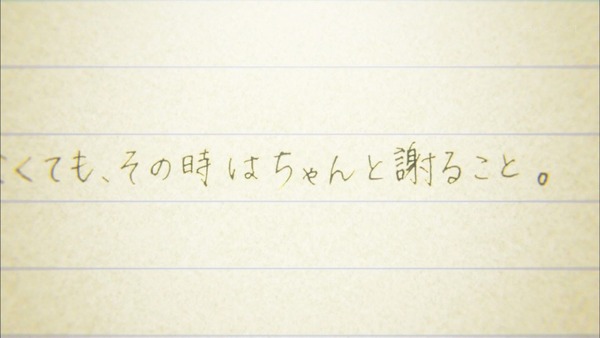 くても、その時はちゃんと謝ること。